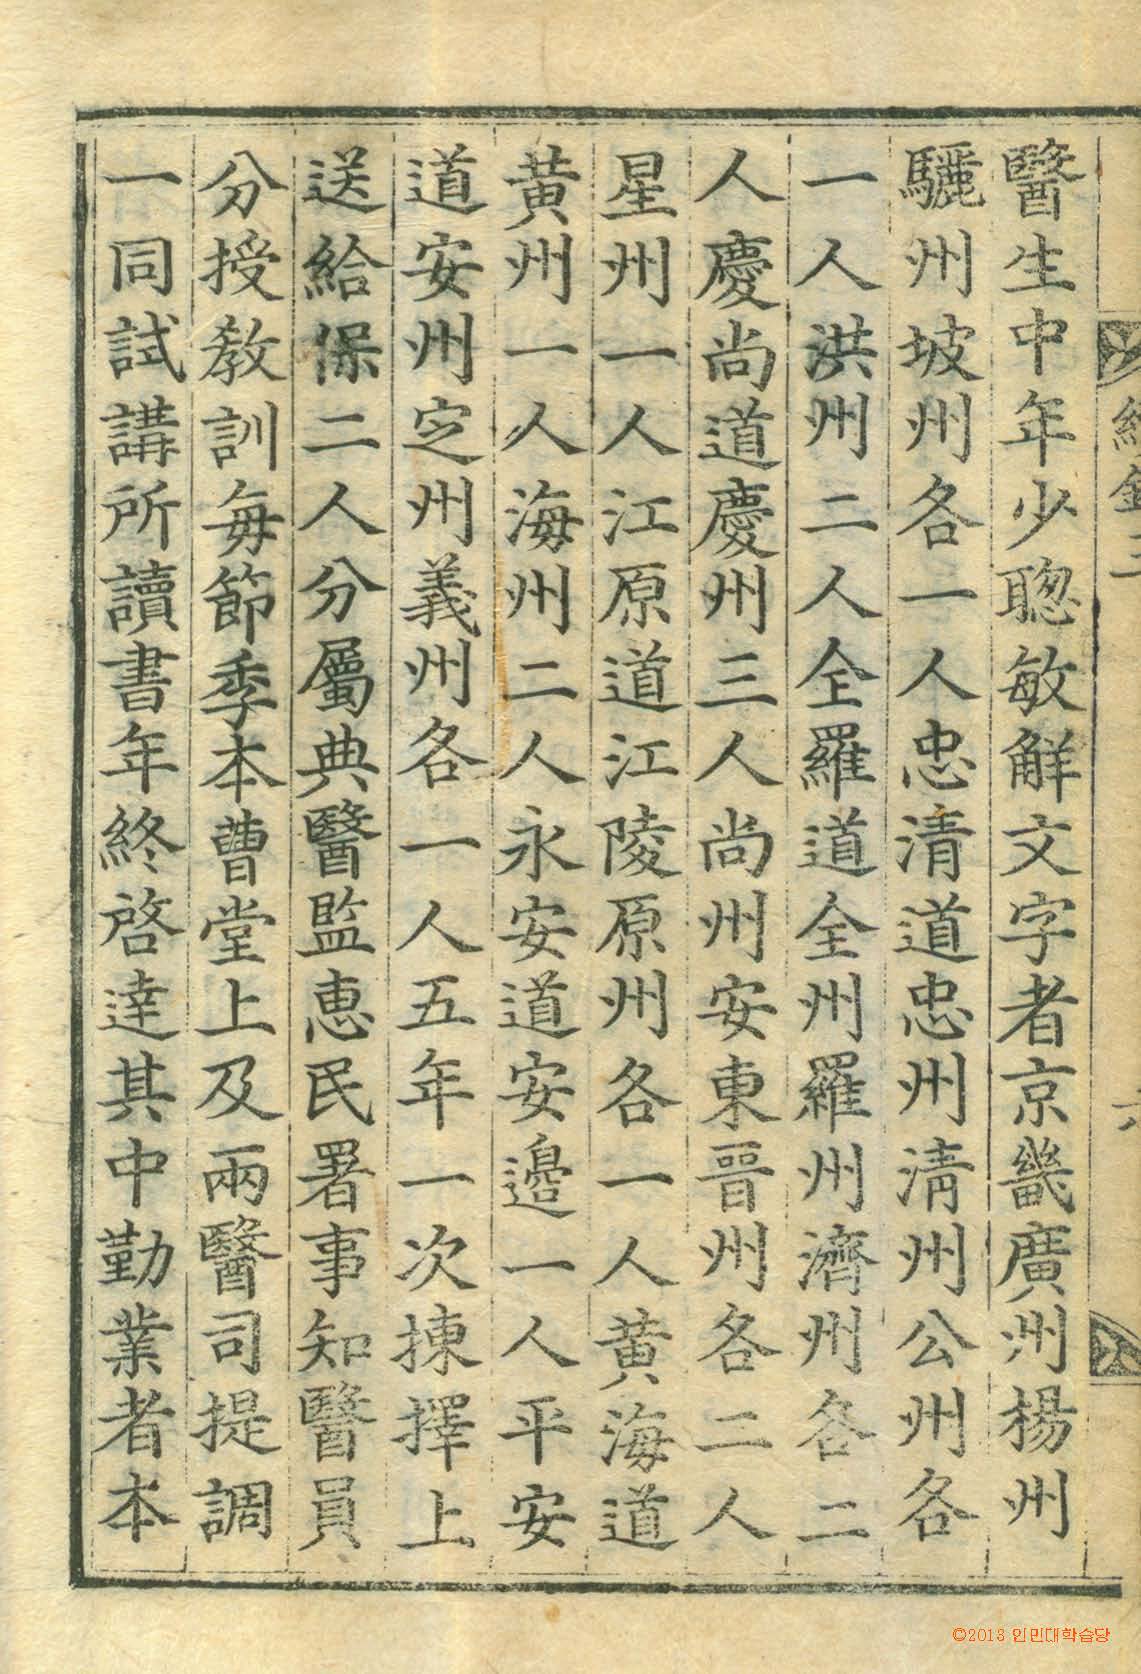 醫生中年少聰敏解文字者京畿廣州楊州
驪州坡州各一人忠清道忠州淸州公州各
一人洪州二人全羅道全州羅州濟州各二
人慶尚道慶州三人尚州安東晉州各二人
星州一人江原道江陵原州各一人黃海道
黃州一人海州二人永安道安邊一人平安
道安州定州義州各一人五年一次揀擇上
送給保二人分屬典醫監惠民署事知醫員
分授敎訓每節季本曹堂上及兩醫司提調
一同試講所讀書年終啓達其中勤業者本
©2013 인민대학습당